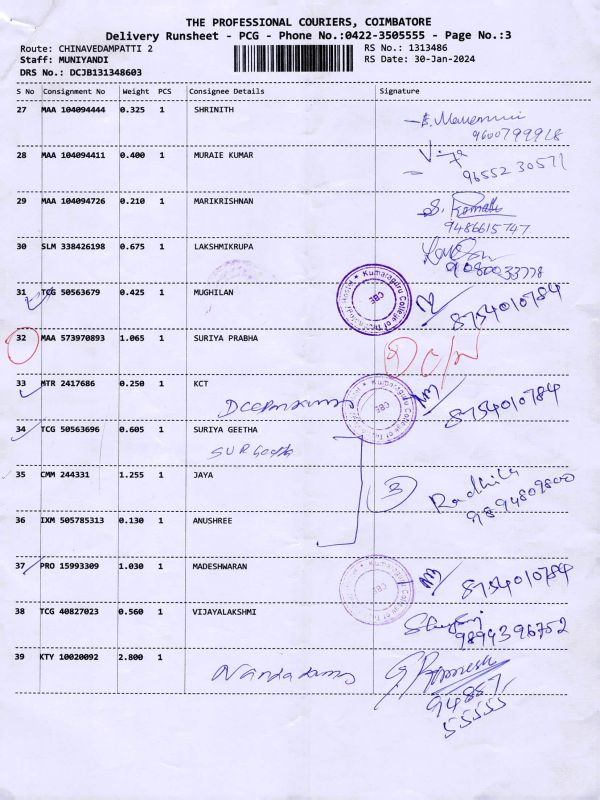 THE PROFESSIONAL COURIERS, COIMBATORE
Delivery Runsheet - PCG - Phone No.:0422-3505555 - Page No.:3
Route: CHINAVEDAMPATTI 2 RS No.: 1313486
Staff: MUNIYANDI RS Date: 30-Jan-2024
DRS No.: DCJB131348603
S No Consignment No Weight PCS Consignee Details Signature
27 MAA 104094444 0.325 1 SHRINITH
9600799918
28 MAA 104094411 0.400 1 MURAIE KUMAR
96552 30571
29 MAA 104094726 0.210 1 MARIKRISHNAN
9486615747
30 SLM 338426198 0.675 1 LAKSHMIKRUPA
9080033778
31 TCG 50563679 0.425 1 MUGHILAN
Kumaraguru College of Technology Hostel CBE
8754010784
32 MAA 573970893 1.065 1 SURIYA PRABHA
33 MTR 2417686 0.250 1 KCT
8754010784
34 TCG 50563696 0.605 1 SURIYA GEETHA
35 CMM 244331 1.255 1 JAYA
3 Radhika
9894809800
36 IXM 505785313 0.130 1 ANUSHREE
37 PRO 15993309 1.030 1 MADESHWARAN
8754010784
38 TCG 40827023 0.560 1 VIJAYALAKSHMI
9894396752
39 KTY 10020092 2.800 1
94857
55555